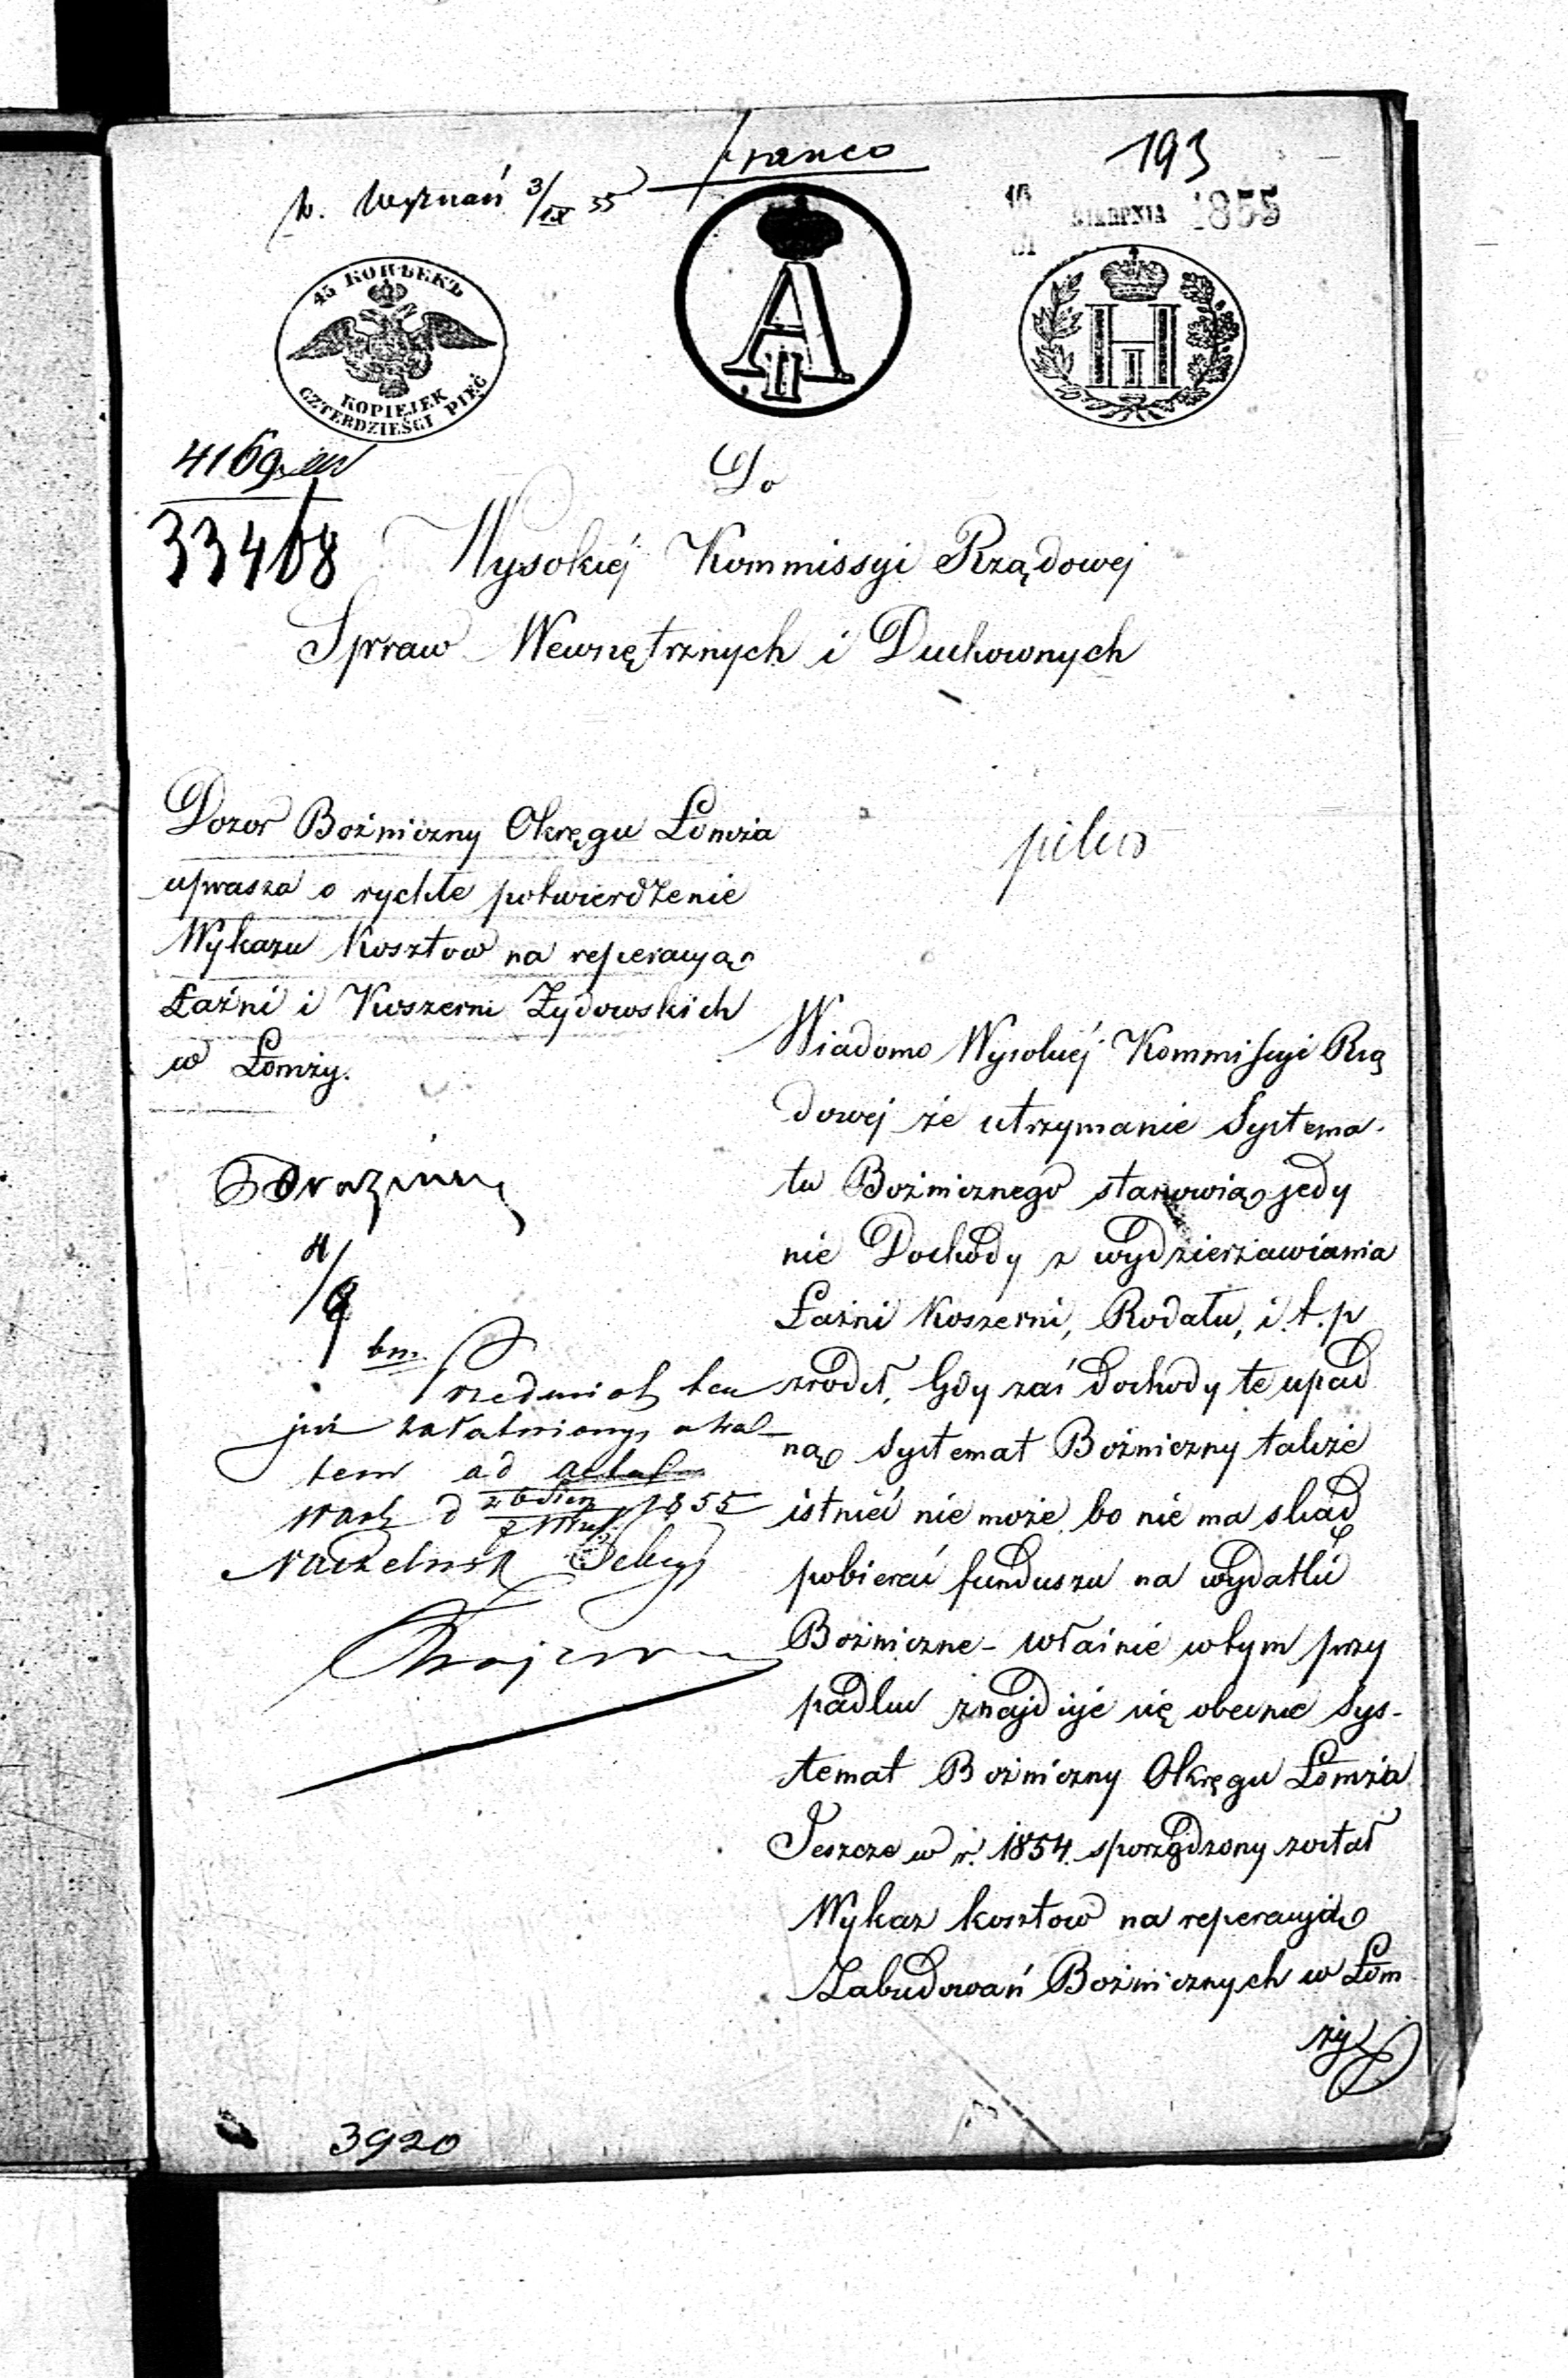 franco
193
w. Wyznań 3/IX 55
SIERPNIA 1855
45 КОПѢЕКЪ
KOPIEJEK
CZTERDZIEŚCI PIĘĆ
A II
H I
4169
33468
Do
Wysokiéj Kommissyi Rządowej
Spraw Wewnętrznych i Duchownych
Dozor Bożniczny Okręgu Łomża
uprasza o rychłe potwierdzenie
Wykazu Kosztow na reperacyją
Łaźni i Koszerni Żydowskich
w Łomży.
pilno
4/9
bm.
Przedmiot ten
już załatwiony, a za-
tem ad acta
Warsz d 1855
Naczelnik Sekcyi
Wiadomo Wysokiéj Kommissyi Rzą
dowej że utrzymanie Systema-
tu Bożnicznego stanowią jedy
nie Dochody z wydzierżawiania
Łaźni Koszerni, Rodału, i. t. p
zrodeł. Gdy zaś dochody te upad
ną systemat Bożniczny także
istnieć nie może bo nie ma skąd
pobierać funduszu na wydatki
Bożniczne - właśnie w tym przy
padku znajduje się obecnie Sys-
temat Bożniczny Okręgu Łomża
Jeszcze w r. 1854. sporządzony został
Wykaz kosztow na reperacyją
Zabudowań Bożnicznych w Łom
ży
3920